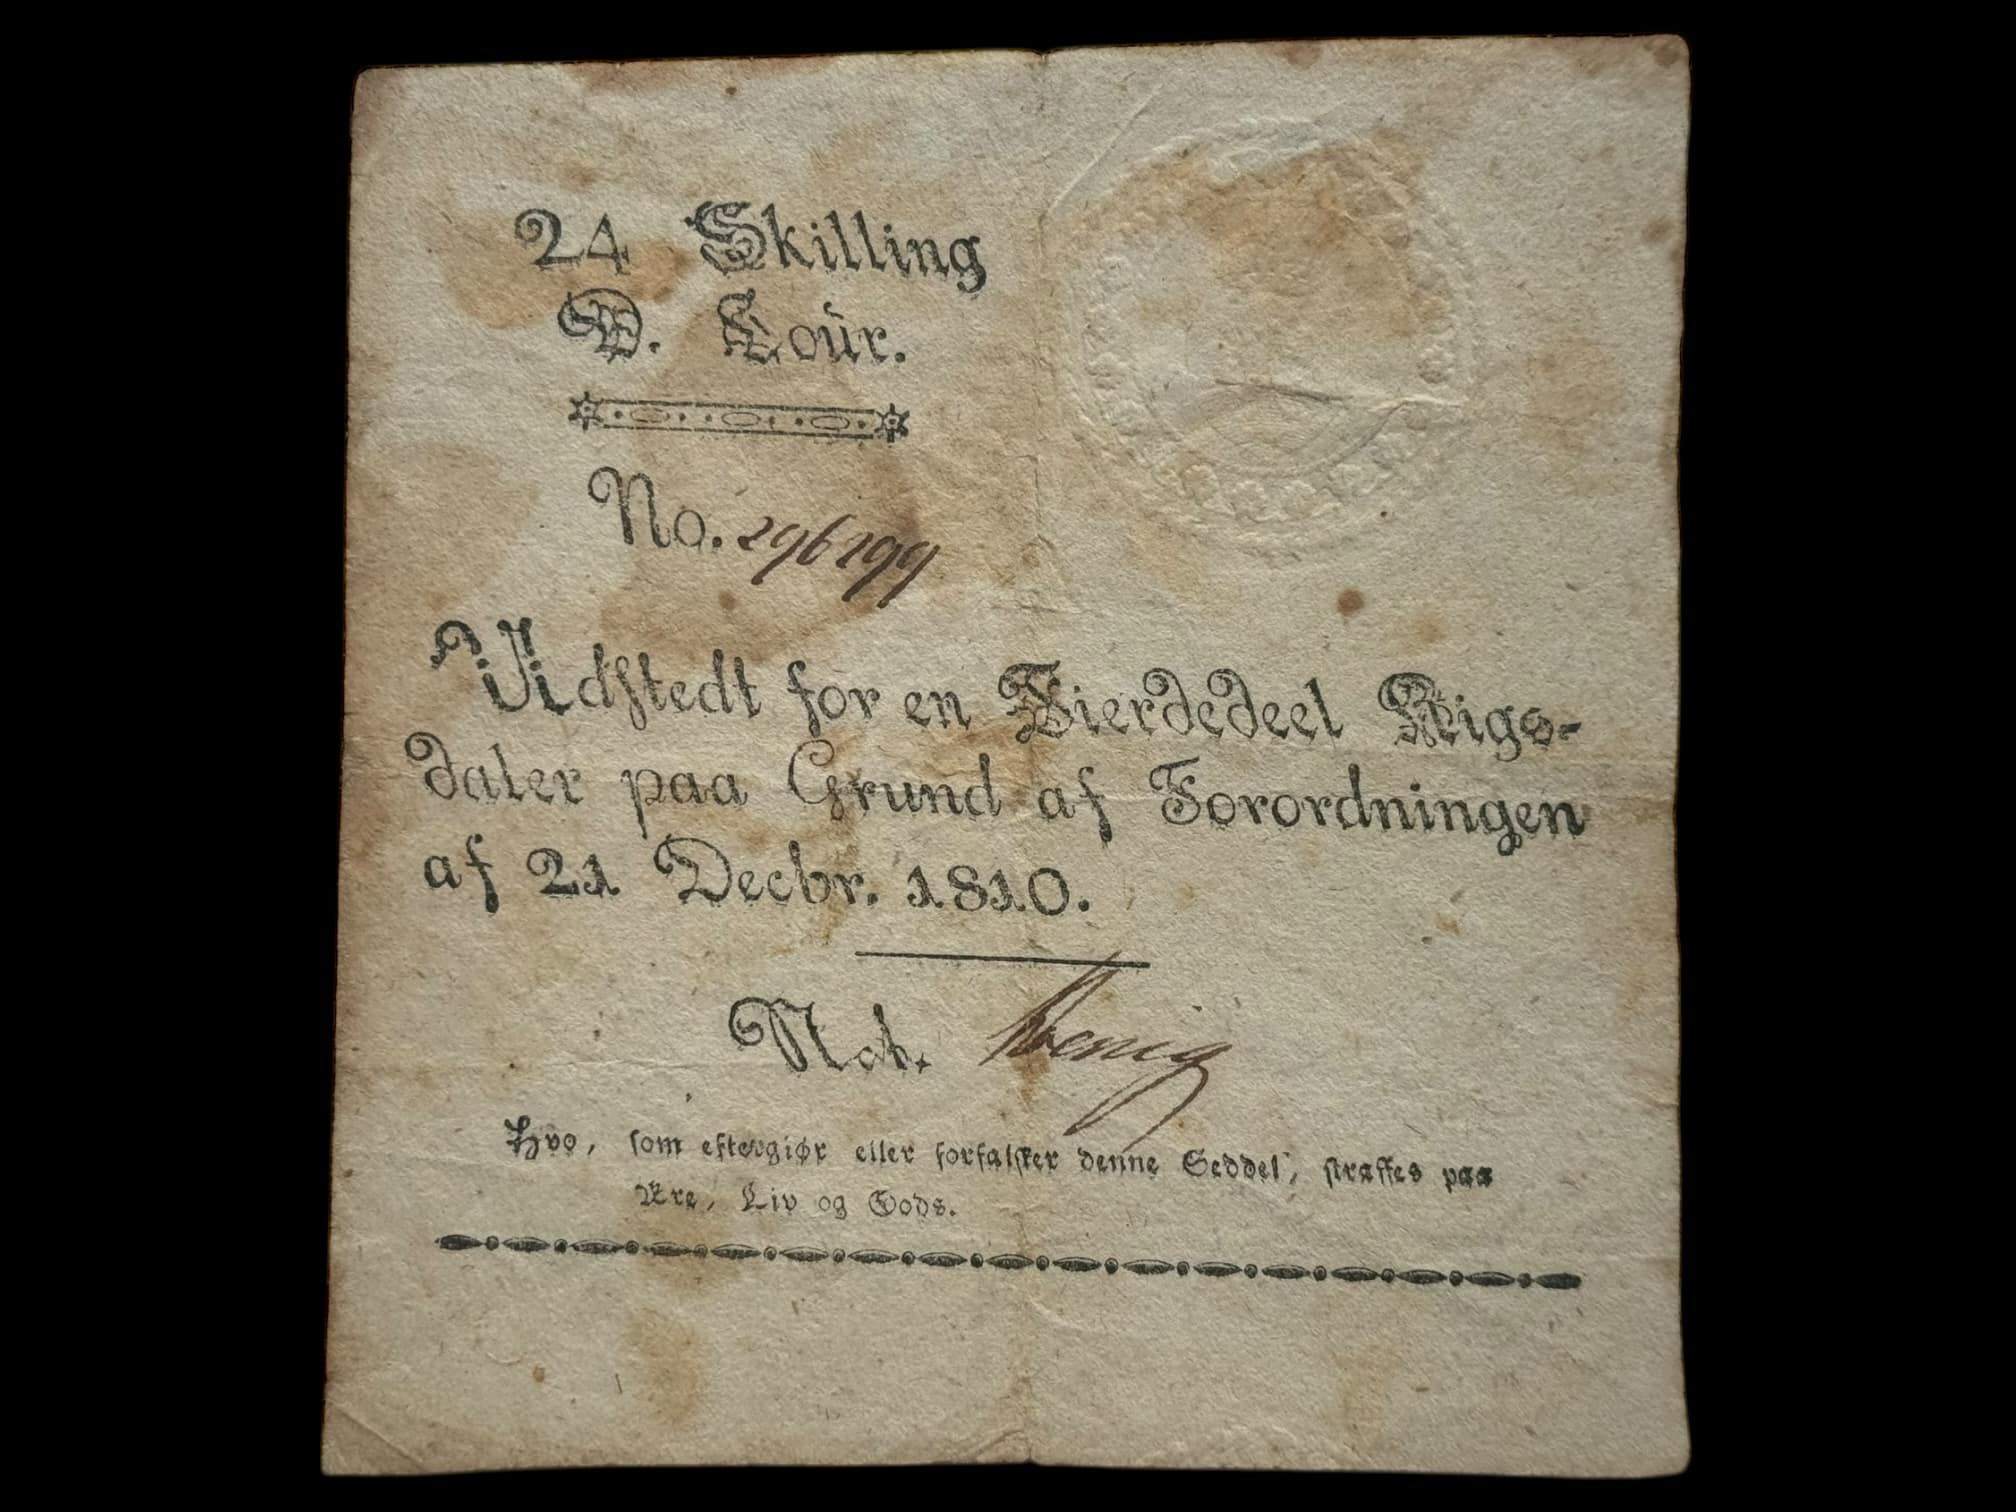 24 Skilling
D. Coúr.
No. 296199
Udstedt for en Fierdedeel Rigs-
daler paa Grund af Forordningen
af 21 Decbr. 1810.
Not. Kønig
Hvo, som eftergiør eller forfalsker denne Seddel, straffes paa
Ære, Liv og Gods.